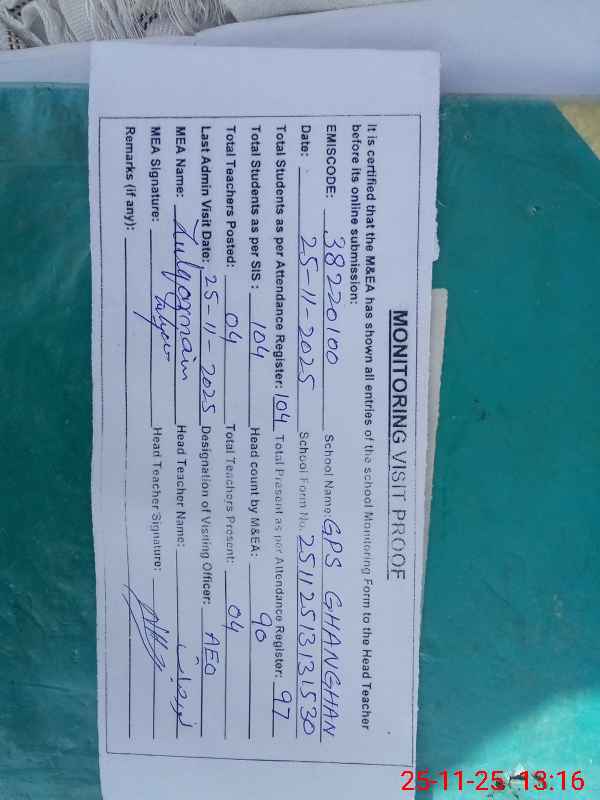 MONITORING VISIT PROOF
It is certified that the M&EA has shown all entries of the school Monitoring Form to the Head Teacher
before its online submission:
EMISCODE: 38220100 School Name: GPS GHANGHAN
Date: 25-11-2025 School Form No. 251125131530
Total Students as per Attendance Register: 104 Total Present as per Attendance Register: 97
Total Students as per SIS: 104 Head count by M&EA: 90
Total Teachers Posted: 04 Total Teachers Present: 04
Last Admin Visit Date: 25-11-2025 Designation of Visiting Officer: AEO
MEA Name: Zulqarnain Head Teacher Name:
MEA Signature: Head Teacher Signature:
Remarks (if any):
25-11-25 13:16